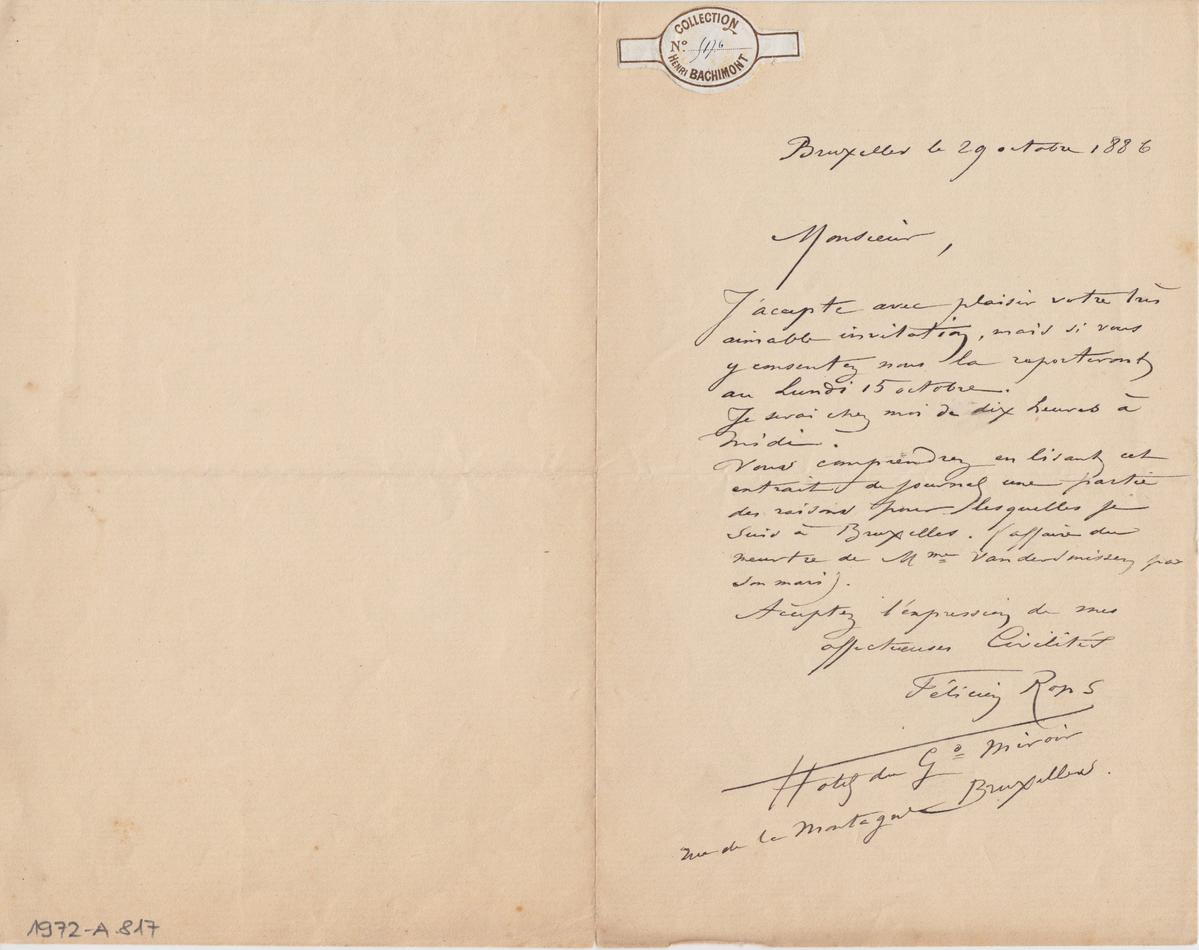 COLLECTION
No
HENRI BACHIMONT
Bruxelles le 29 octobre 1886
Monsieur,
J'accepte avec plaisir votre très
aimable invitation, mais si vous
y consentez nous la reporterons
au Lundi 15 octobre.
Je serai chez moi de dix heures à
midi.
Vous comprendrez en lisant cet
extrait de journal une partie
des raisons pour lesquelles je
suis à Bruxelles. (affaire du
meurtre de Mme Vandersmissen par
son mari).
Acceptez l'expression de mes
affectueuses Civilités
Félicien Rops
Hotel du Gd Miroir
rue de la Montagne Bruxelles.
1972-A.817